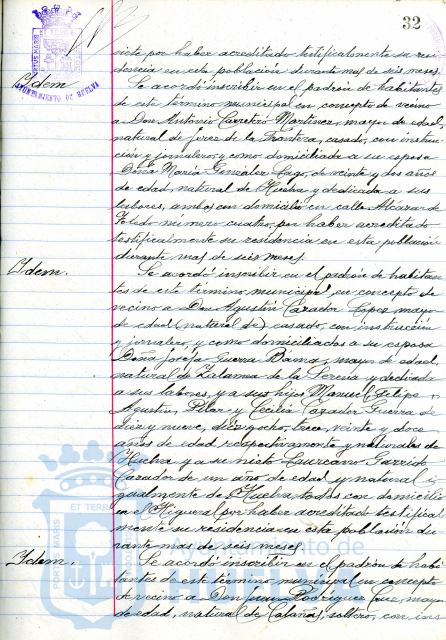 32
siete por haber acreditado testificalmente su resi-
dencia en esta población durante mas de seis meses.
Idem.
Se acordó inscribir en el padrón de habitantes
de este término municipal en concepto de vecino
a Don Antonio Carretró Martinez, mayor de edad,
natural de Jerez de la Frontera, casado, con instruc-
ción y jornalero; y como domiciliada a su esposa
Doña María Gonzalez Lago, de veinte y dos años
de edad, natural de Huelva y dedicada a sus
labores, ambos con domicilio en calle Alcázar de
Toledo número cuatro, por haber acreditado
testificalmente su residencia en esta población
durante mas de seis meses.
Idem.
Se acordó inscribir en el padrón de habitan-
tes de este término municipal, en concepto de
vecino a Don Agustín Cazador Lopez, mayor
de edad (natural de) casado, con instrucción
y jornalero, y como domiciliados a su esposa
Doña Josefa Guerra mayor de edad,
natural de Zalamea de la Serena y dedicada
a sus labores, y a sus hijos Manuel, Felipe,
Agustín, Pilar y Cecilia Cazador Guerra de
diez y nueve, diez y ocho, trece, veinte y doce
años de edad respectivamente y naturales de
Huelva y a su nieto Garrido
Cazador de un año de edad y natural i-
gualmente de Huelva, todos con domicilio
en el Higueral por haber acreditado testifical-
mente su residencia en esta población du-
rante mas de seis meses.
Idem.
Se acordó inscribir en el padrón de habi-
tantes de este término municipal en concepto
de vecino a Don Juan Rodríguez Cruz, mayor
de edad, natural de Calañas, soltero, con ins-
PORTUS MARIS
ET TERRAE
Ayuntamiento de